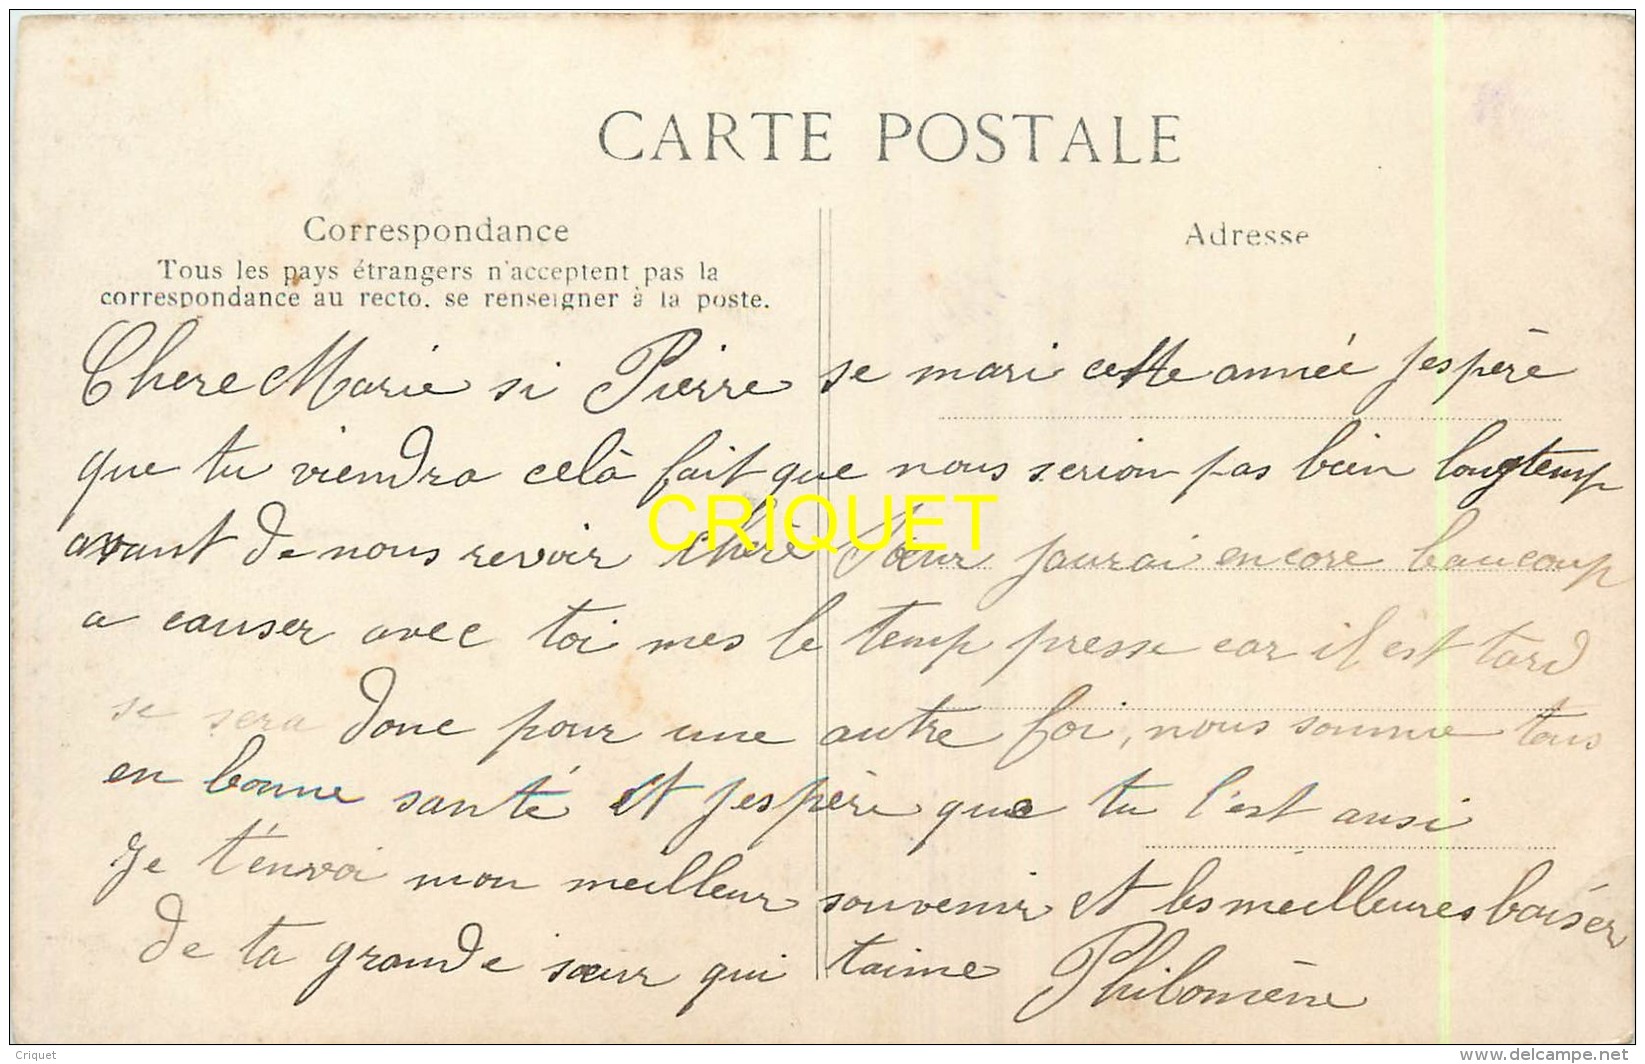 CARTE POSTALE
Correspondance
Adresse
Tous les pays étrangers n'acceptent pas la
correspondance au recto, se renseigner à la poste.
Chere Marie si Pierre se mari cette année jespère
que tu viendra celà fait que nous serion pas bien longtemp
avant de nous revoir chère Sœur jaurai encore baucoup
a causer avec toi mes le temp presse car il est tard
se sera donc pour une autre foi, nous somme tous
en bonne santé et jespère que tu l'est ausi
Je t'envoi mon meilleur souvenir et les meilleures baiser
de ta grande sœur qui taime Philomène
CRIQUET
Criquet
www.delcampe.net